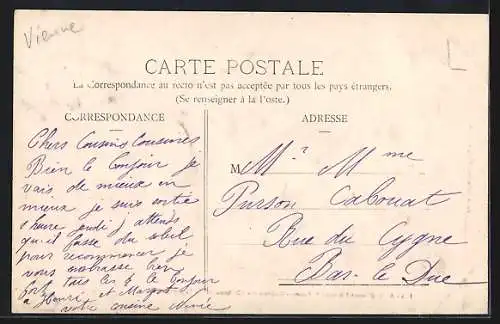 Vienne
L
CARTE POSTALE
La Correspondance au recto n'est pas acceptée par tous les pays étrangers.
(Se renseigner à la Poste.)
CORRESPONDANCE
ADRESSE
Chers Cousins Cousines
Bien le bonjour je
vais de mieux en
mieux je suis sortie
1 heure jeudi j attends
qu'il fasse du soleil
pour recommencer je
vous embrasse bien
fort tous les 2 le bonjour
a Henri et Margot
votre cousine
M Mr Mme
Purson Cabouat
Rue du Cygne
Bar-le Duc